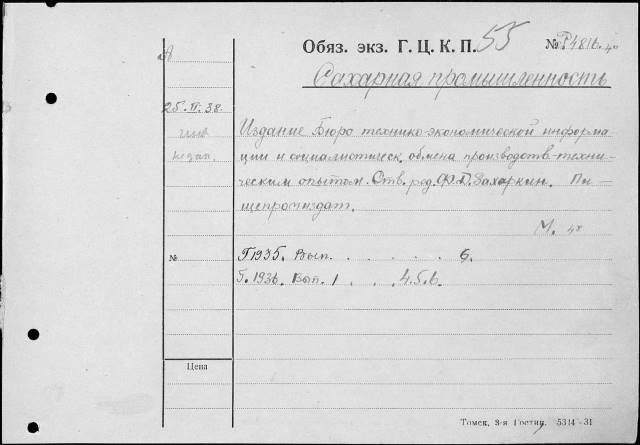 А
Обяз. экз. Г. Ц. К. П. 55
№ Р481б 40
Сахарная промышленность
25. II. 38.
Издание Бюро технико-экономической информа
ции и социалистическ. обмена производств.-техни-
ческим опытом. Отв. ред. Ф. Г. Захаркин. Пи-
щепромиздат.
М. 4°
№
Г. 1935. Вып. . . . . . 6.
Г. 1936. Вып. 1 . . 4. 5. 6.
Цена
Томск, 3-я Гостип. 5314-31